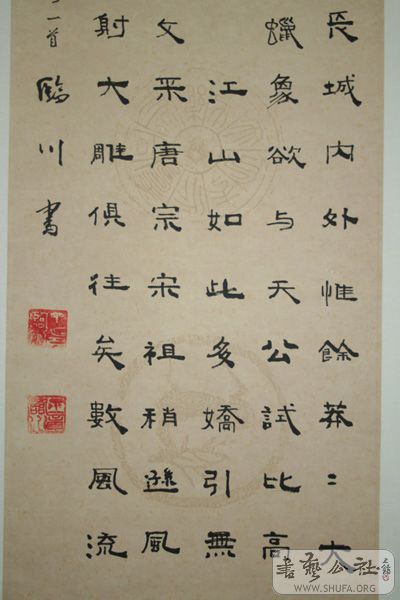 長城内外惟餘莽〻大
蠟象欲与天公試比高
江山如此多嬌引無
文采唐宗宋祖稍遜風
射大雕俱往矣數風流
一首 臨川書
書藝公社
WWW.SHUFA.ORG